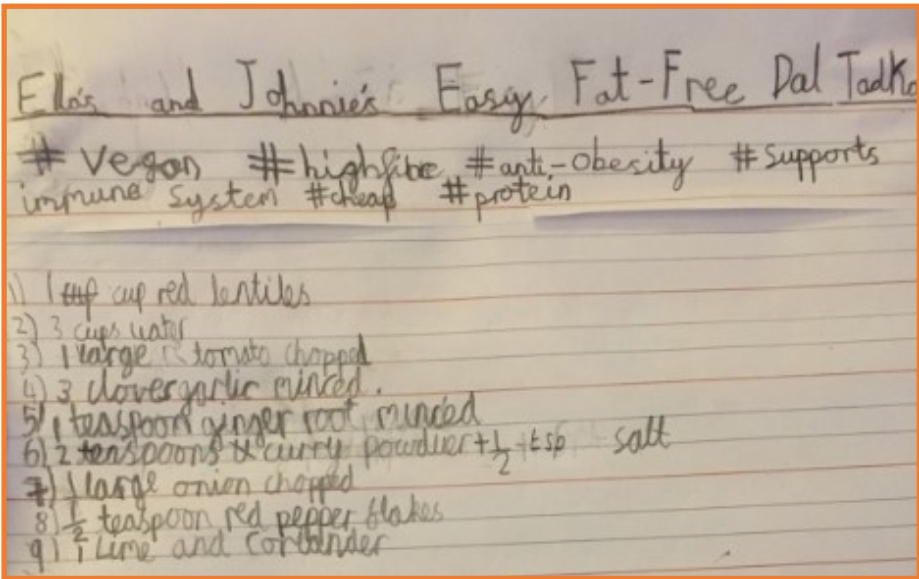 Ella's and Johnnie's Easy, Fat-Free Dal Tadka
# Vegan #highfibre #anti-obesity #supports
immune system #cheap #protein
1) 1 cup red lentiles
2) 3 cups water
3) 1 large tomato chopped
4) 3 clovergarlic minced.
5) 1 teaspoon ginger root minced
6) 2 teaspoons curry powder + ½ tsp salt
7) 1 large onion chopped
8) ½ teaspoon red pepper flakes
9) 1 Lime and Coriander